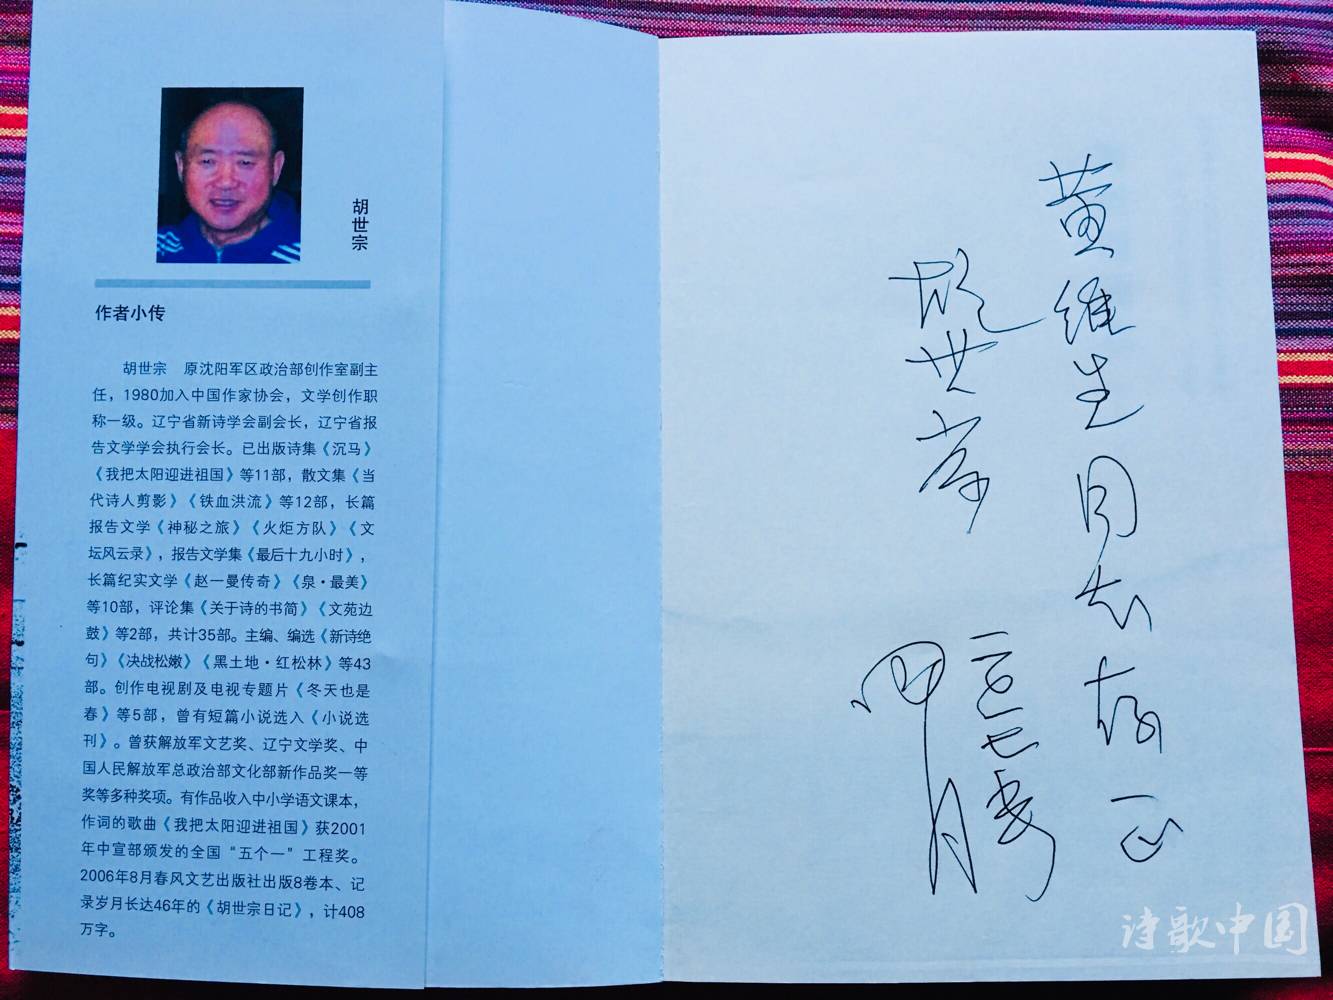 胡世宗
作者小传
胡世宗　原沈阳军区政治部创作室副主
任，1980加入中国作家协会，文学创作职
称一级。辽宁省新诗学会副会长，辽宁省报
告文学学会执行会长。已出版诗集《沉马》
《我把太阳迎进祖国》等11部，散文集《当
代诗人剪影》《铁血洪流》等12部，长篇
报告文学《神秘之旅》《火炬方队》《文
坛风云录》，报告文学集《最后十九小时》，
长篇纪实文学《赵一曼传奇》《泉·最美》
等10部，评论集《关于诗的书简》《文苑边
鼓》等2部，共计35部。主编、编选《新诗绝
句》《决战松嫩》《黑土地·红松林》等43
部。创作电视剧及电视专题片《冬天也是
春》等5部，曾有短篇小说选入《小说选
刊》。曾获解放军文艺奖、辽宁文学奖、中
国人民解放军总政治部文化部新作品奖一等
奖等多种奖项。有作品收入中小学语文课本，
作词的歌曲《我把太阳迎进祖国》获2001
年中宣部颁发的全国“五个一”工程奖。
2006年8月春风文艺出版社出版8卷本、记
录岁月长达46年的《胡世宗日记》，计408
万字。
黄维生同志存正
胡世宗
诗歌中国